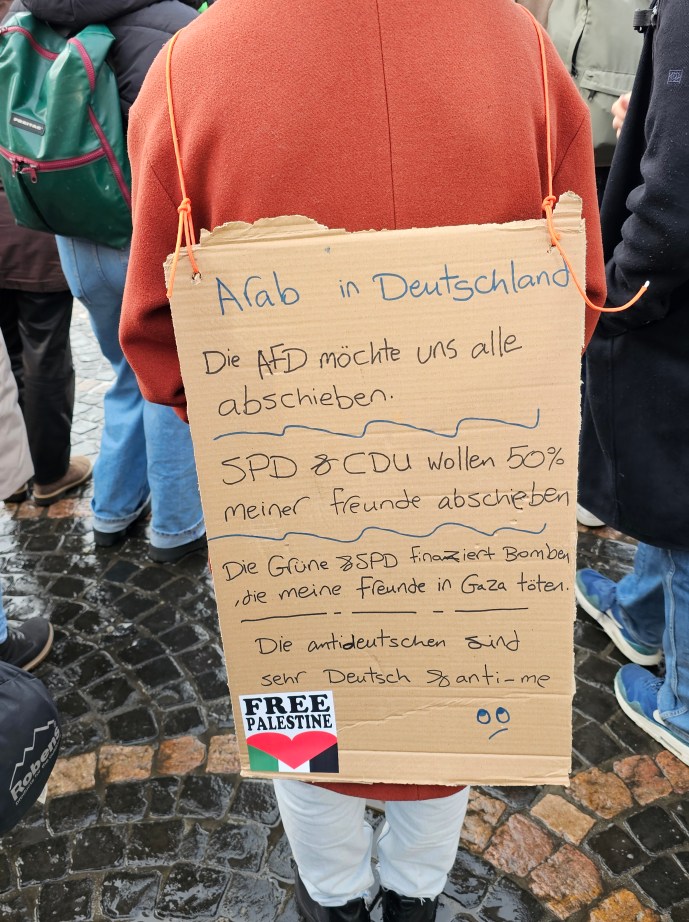 Arab in Deutschland
Die AFD möchte uns alle
abschieben.
SPD & CDU wollen 50%
meiner freunde abschieben
Die Grüne & SPD finanziert Bomben
, die meine freunde in Gaza töten.
Die antideutschen sind
sehr Deutsch & anti-me
FREE
PALESTINE
Robens